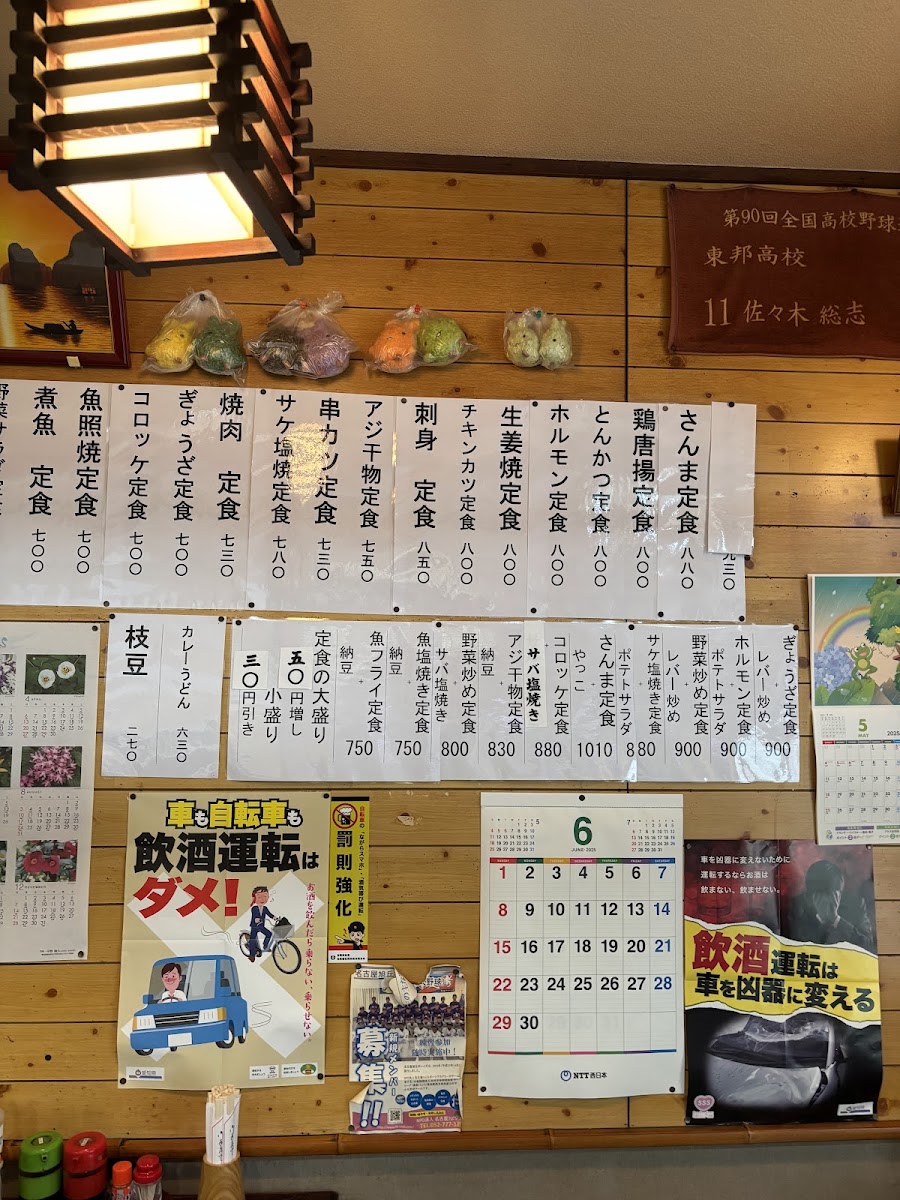 第90回全国高校野球
東邦高校
11 佐々木 総志
九三〇
さんま定食 八八〇
鶏唐揚定食 八〇〇
とんかつ定食 八〇〇
ホルモン定食 八〇〇
生姜焼定食 八〇〇
チキンカツ定食 八〇〇
刺身 定食 八五〇
アジ干物定食 七五〇
串カツ定食 七三〇
サケ塩焼定食 七八〇
焼肉 定食 七三〇
ぎょうざ定食 七〇〇
コロッケ定食 七〇〇
魚照焼定食 七〇〇
煮魚 定食 七〇〇
野菜サラダ定食
ぎょうざ定食
+
レバー炒め
900
ホルモン定食
+
ポテトサラダ
900
野菜炒め定食
+
レバー炒め
900
サケ塩焼き定食
+
ポテトサラダ
880
さんま定食
+
やっこ
1010
コロッケ定食
+
サバ塩焼き
880
アジ干物定食
+
納豆
830
野菜炒め定食
+
サバ塩焼き
800
魚塩焼き定食
+
納豆
750
魚フライ定食
+
納豆
750
定食の大盛り
五〇円増し
小盛り
三〇円引き
カレーうどん 六三〇
枝豆 二七〇
車も自転車も
飲酒運転は
ダメ!
お酒を飲んだら乗らない、乗らせない。
愛知県
自転車の「ながらスマホ」・「酒気帯び運転」
罰則強化
名古屋旭丘
野球
新規メンバー
募集!!
体験参加
随時実施中!
6
JUNE 2025
SUNDAY MONDAY TUESDAY WEDNESDAY THURSDAY FRIDAY SATURDAY
1 2 3 4 5 6 7
8 9 10 11 12 13 14
15 16 17 18 19 20 21
22 23 24 25 26 27 28
29 30
NTT西日本
5
MAY
2025
車を凶器に変えないために
運転するならお酒は
飲まない、飲ませない。
飲酒運転は
車を凶器に変える
4
8
12